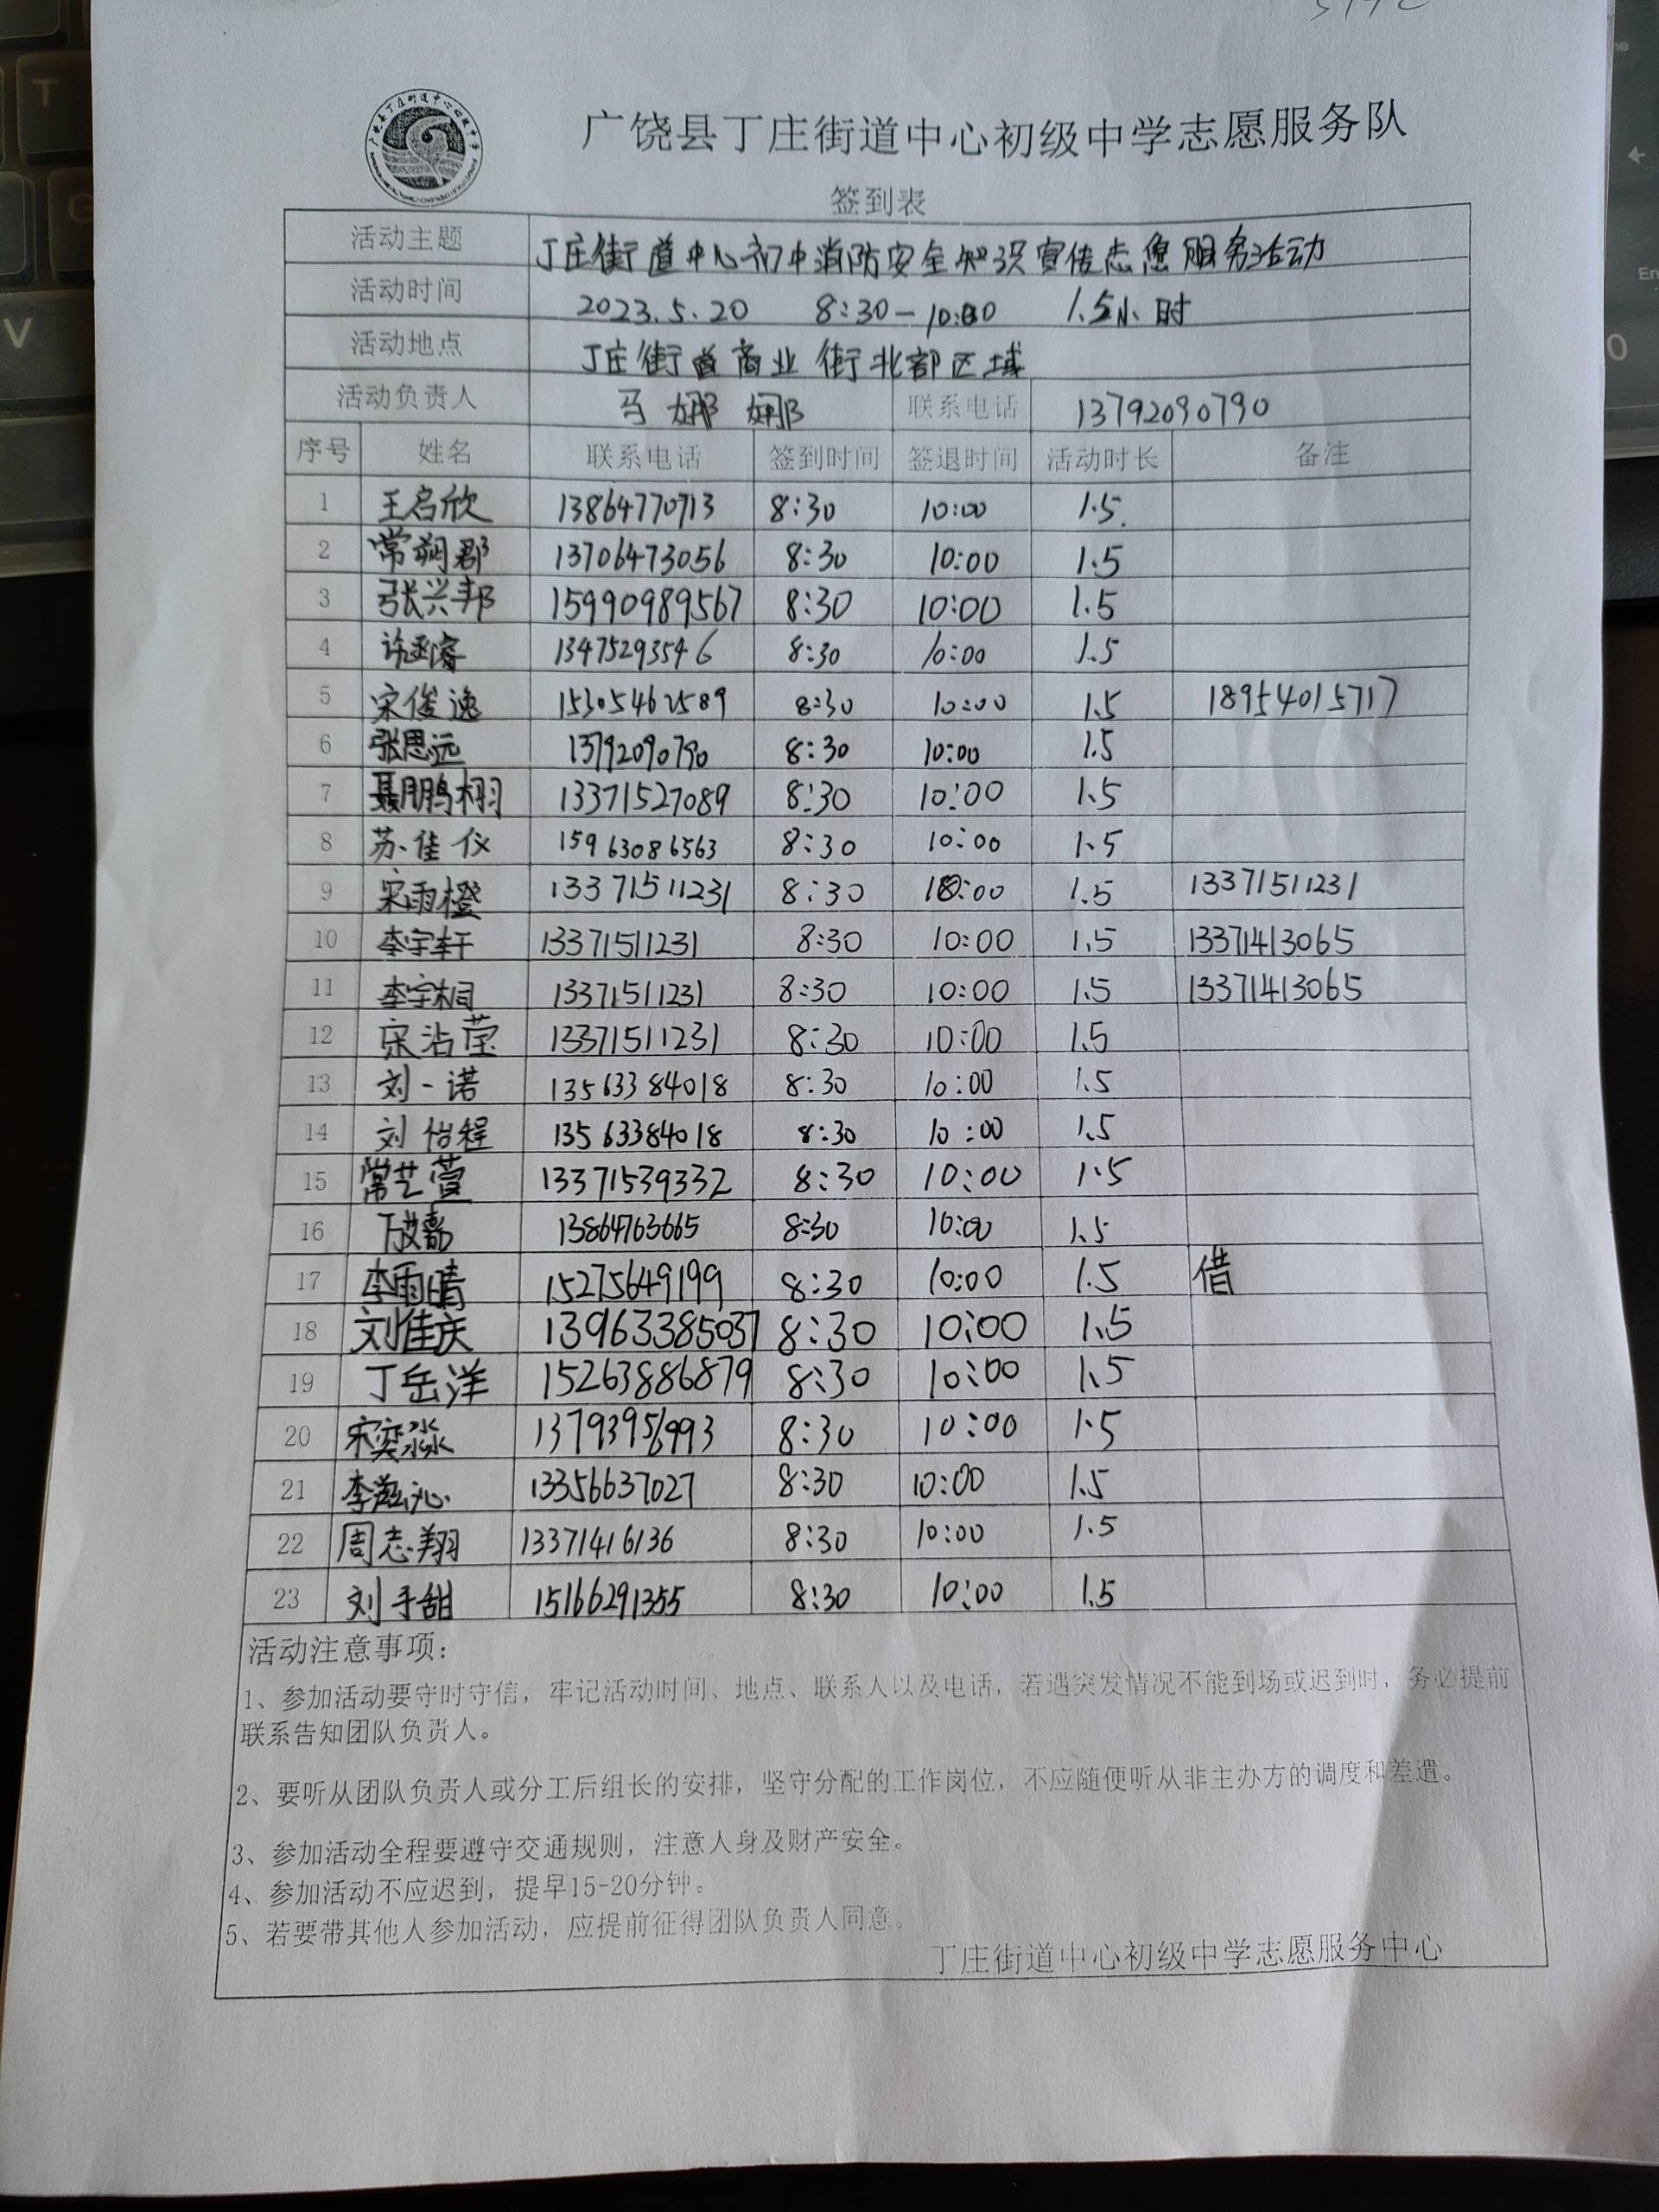 广饶县丁庄街道中心初级中学志愿服务队
签到表
活动主题 丁庄街道中心初中消防安全知识宣传志愿服务活动
活动时间 2023.5.20 8:30—10:00 1.5小时
活动地点 丁庄街道商业街北部区域
活动负责人 马娜娜 联系电话 13792090790
序号 姓名 联系电话 签到时间 签退时间 活动时长 备注
1 王启欣 13864770713 8:30 10:00 1.5
2 常朔郡 13706473056 8:30 10:00 1.5
3 张兴邦 15990989567 8:30 10:00 1.5
4 许 13475293546 8:30 10:00 1.5
5 宋俊逸 15305462589 8:30 10:00 1.5 18954015717
6 张思远 13792090790 8:30 10:00 1.5
7 聂鹏栩 13371527089 8:30 10:00 1.5
8 苏佳仪 15963086563 8:30 10:00 1.5
9 宋雨橙 13371511231 8:30 10:00 1.5 13371511231
10 李宇轩 13371511231 8:30 10:00 1.5 13371413065
11 李宇桐 13371511231 8:30 10:00 1.5 13371413065
12 宋沾莹 13371511231 8:30 10:00 1.5
13 刘一诺 13563384018 8:30 10:00 1.5
14 刘怡程 13563384018 8:30 10:00 1.5
15 常艺萱 13371539332 8:30 10:00 1.5
16 13864763665 8:30 10:00 1.5
17 李雨晴 15275649199 8:30 10:00 1.5 借
18 刘佳庆 13963385037 8:30 10:00 1.5
19 丁岳洋 15263886879 8:30 10:00 1.5
20 宋奕淼 13793956993 8:30 10:00 1.5
21 李沁 13356637027 8:30 10:00 1.5
22 周志翔 13371416136 8:30 10:00 1.5
23 刘子甜 15166291355 8:30 10:00 1.5
活动注意事项：
1、参加活动要守时守信，牢记活动时间、地点、联系人以及电话，若遇突发情况不能到场或迟到时，务必提前
联系告知团队负责人。
2、要听从团队负责人或分工后组长的安排，坚守分配的工作岗位，不应随便听从非主办方的调度和差遣。
3、参加活动全程要遵守交通规则，注意人身及财产安全。
4、参加活动不应迟到，提早15-20分钟。
5、若要带其他人参加活动，应提前征得团队负责人同意。
丁庄街道中心初级中学志愿服务中心